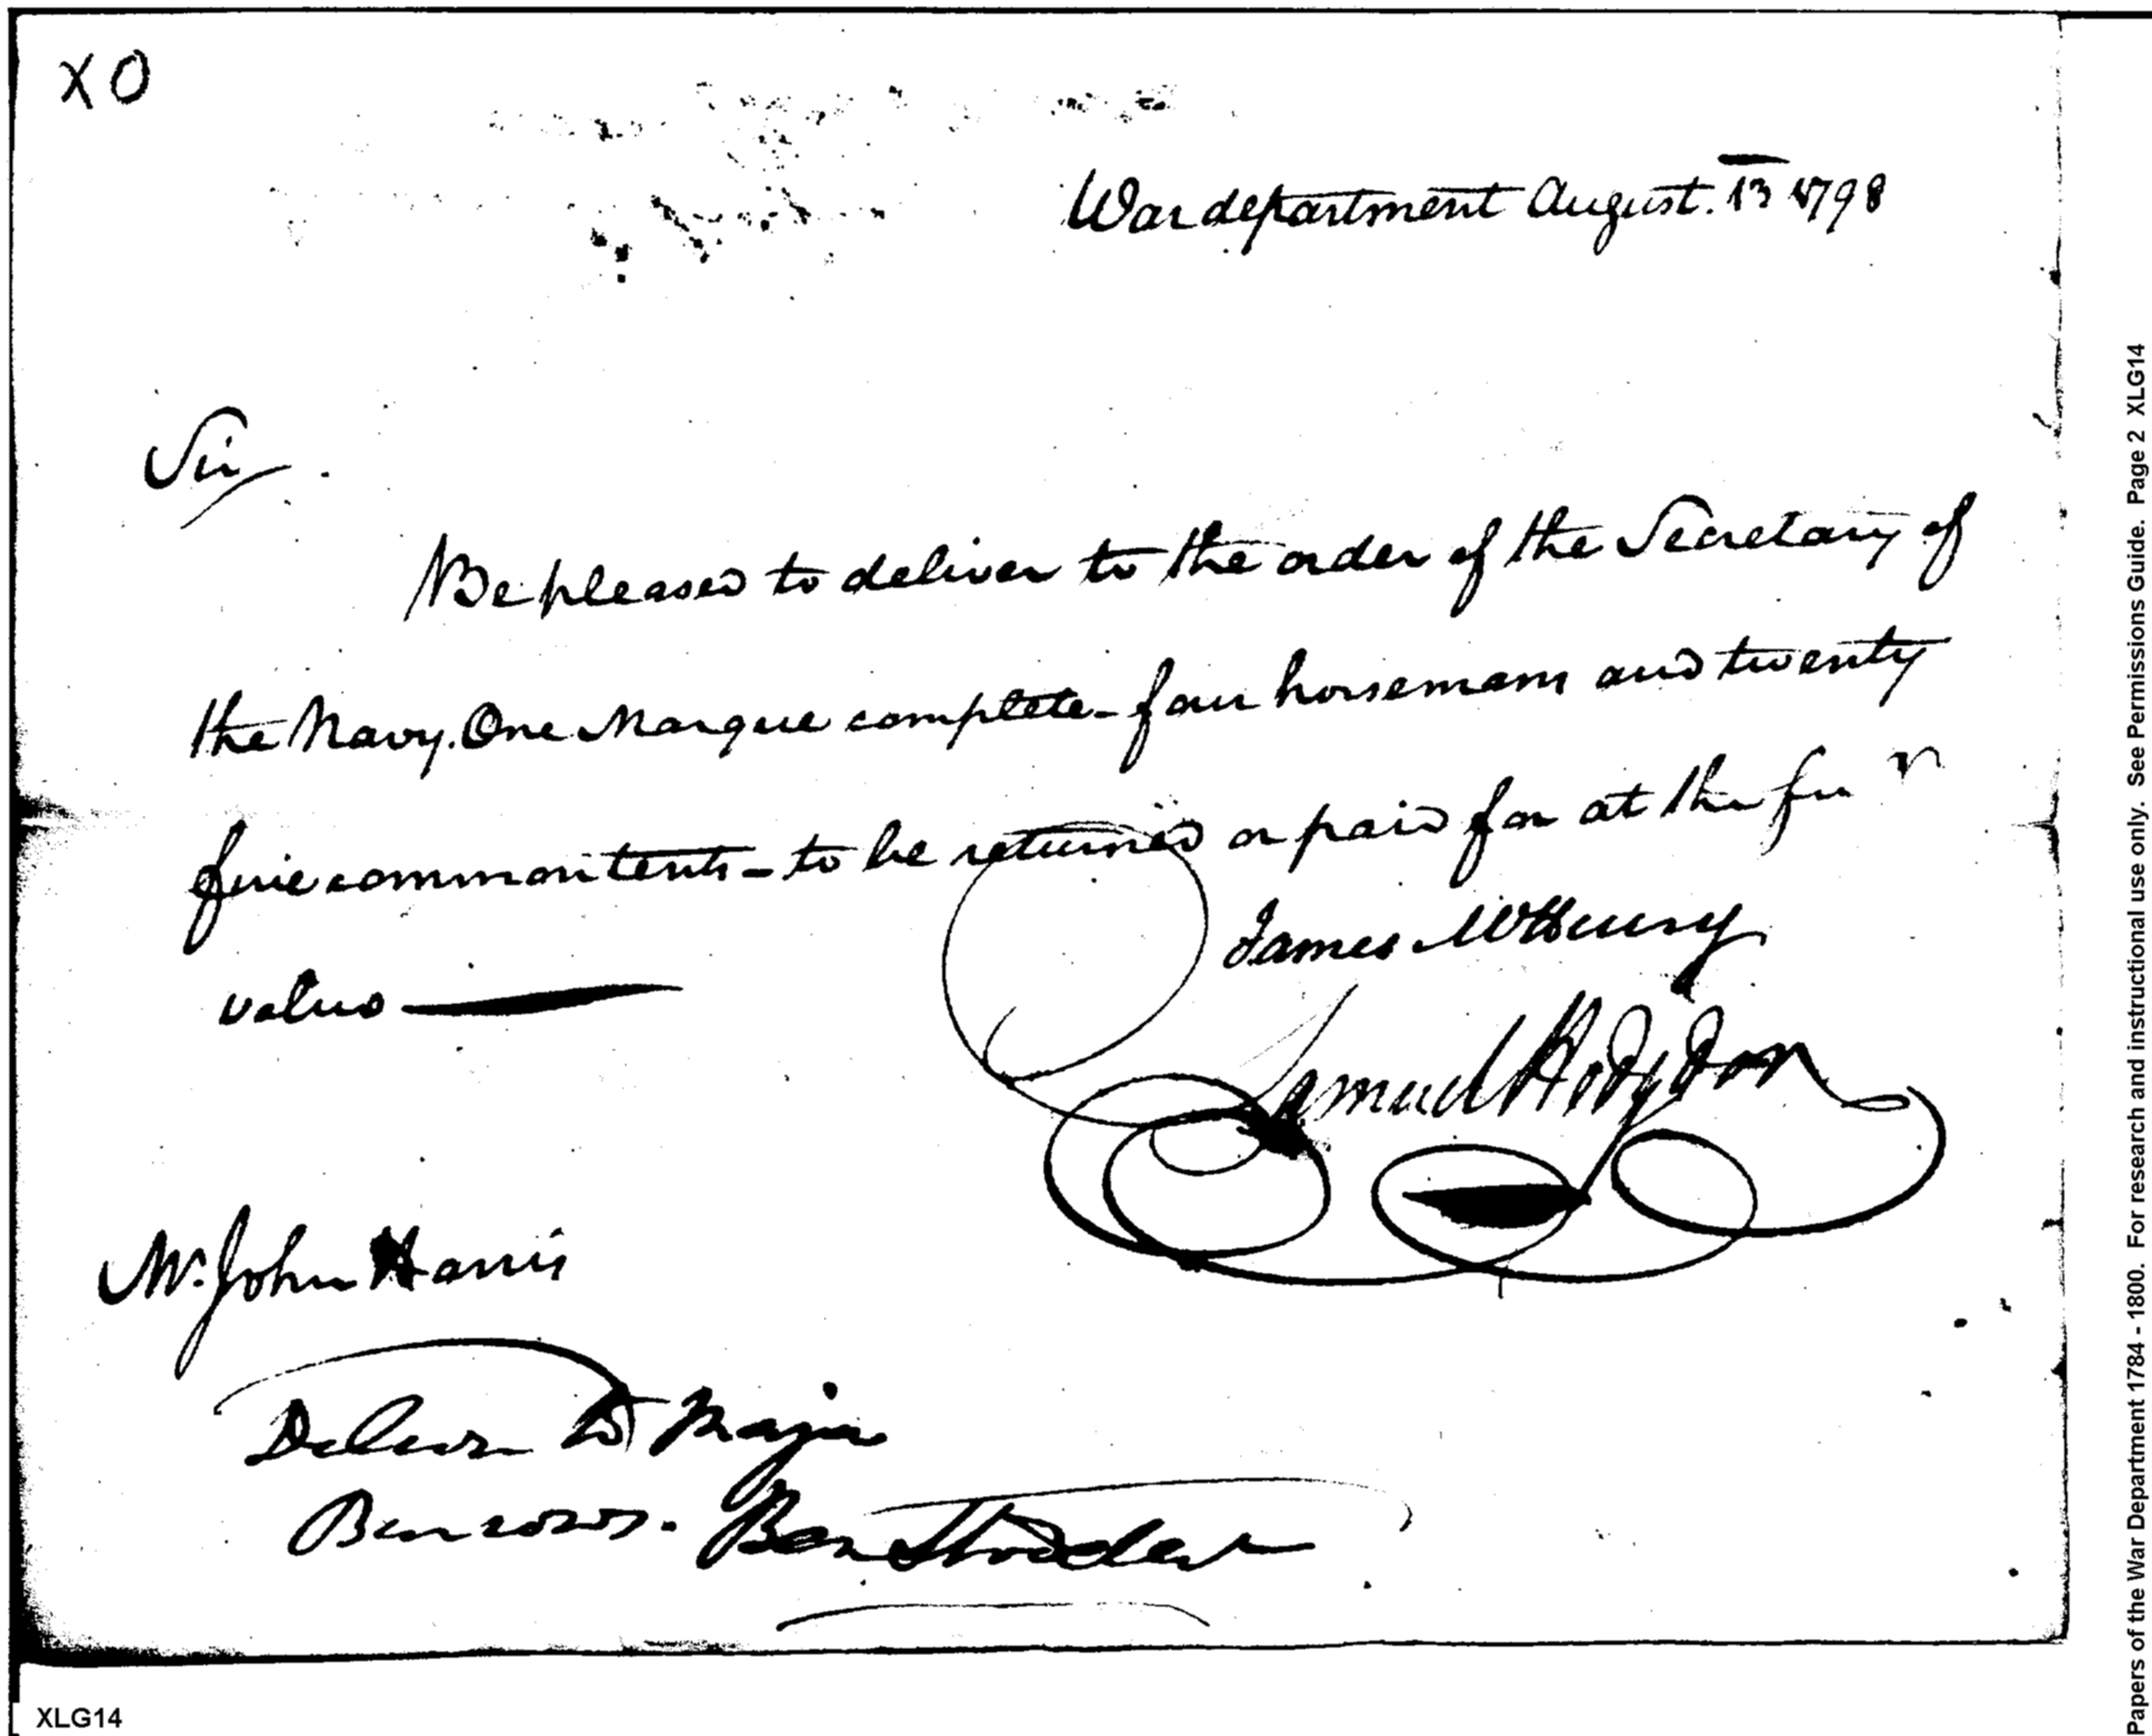 XO
War department August. 13 1798
Sir
Be pleased to deliver to the order of the Secretary of
the Navy. One Marque complete - four horsemans and twenty
five common tents - to be returned or paid for at the
value
James McHenry
Samuel Hodgdon
Mr. John Harris
Deliver to Major
Burrows. Ben Stoddert
XLG14
Papers of the War Department 1784 - 1800. For research and instructional use only. See Permissions Guide. Page 2 XLG14